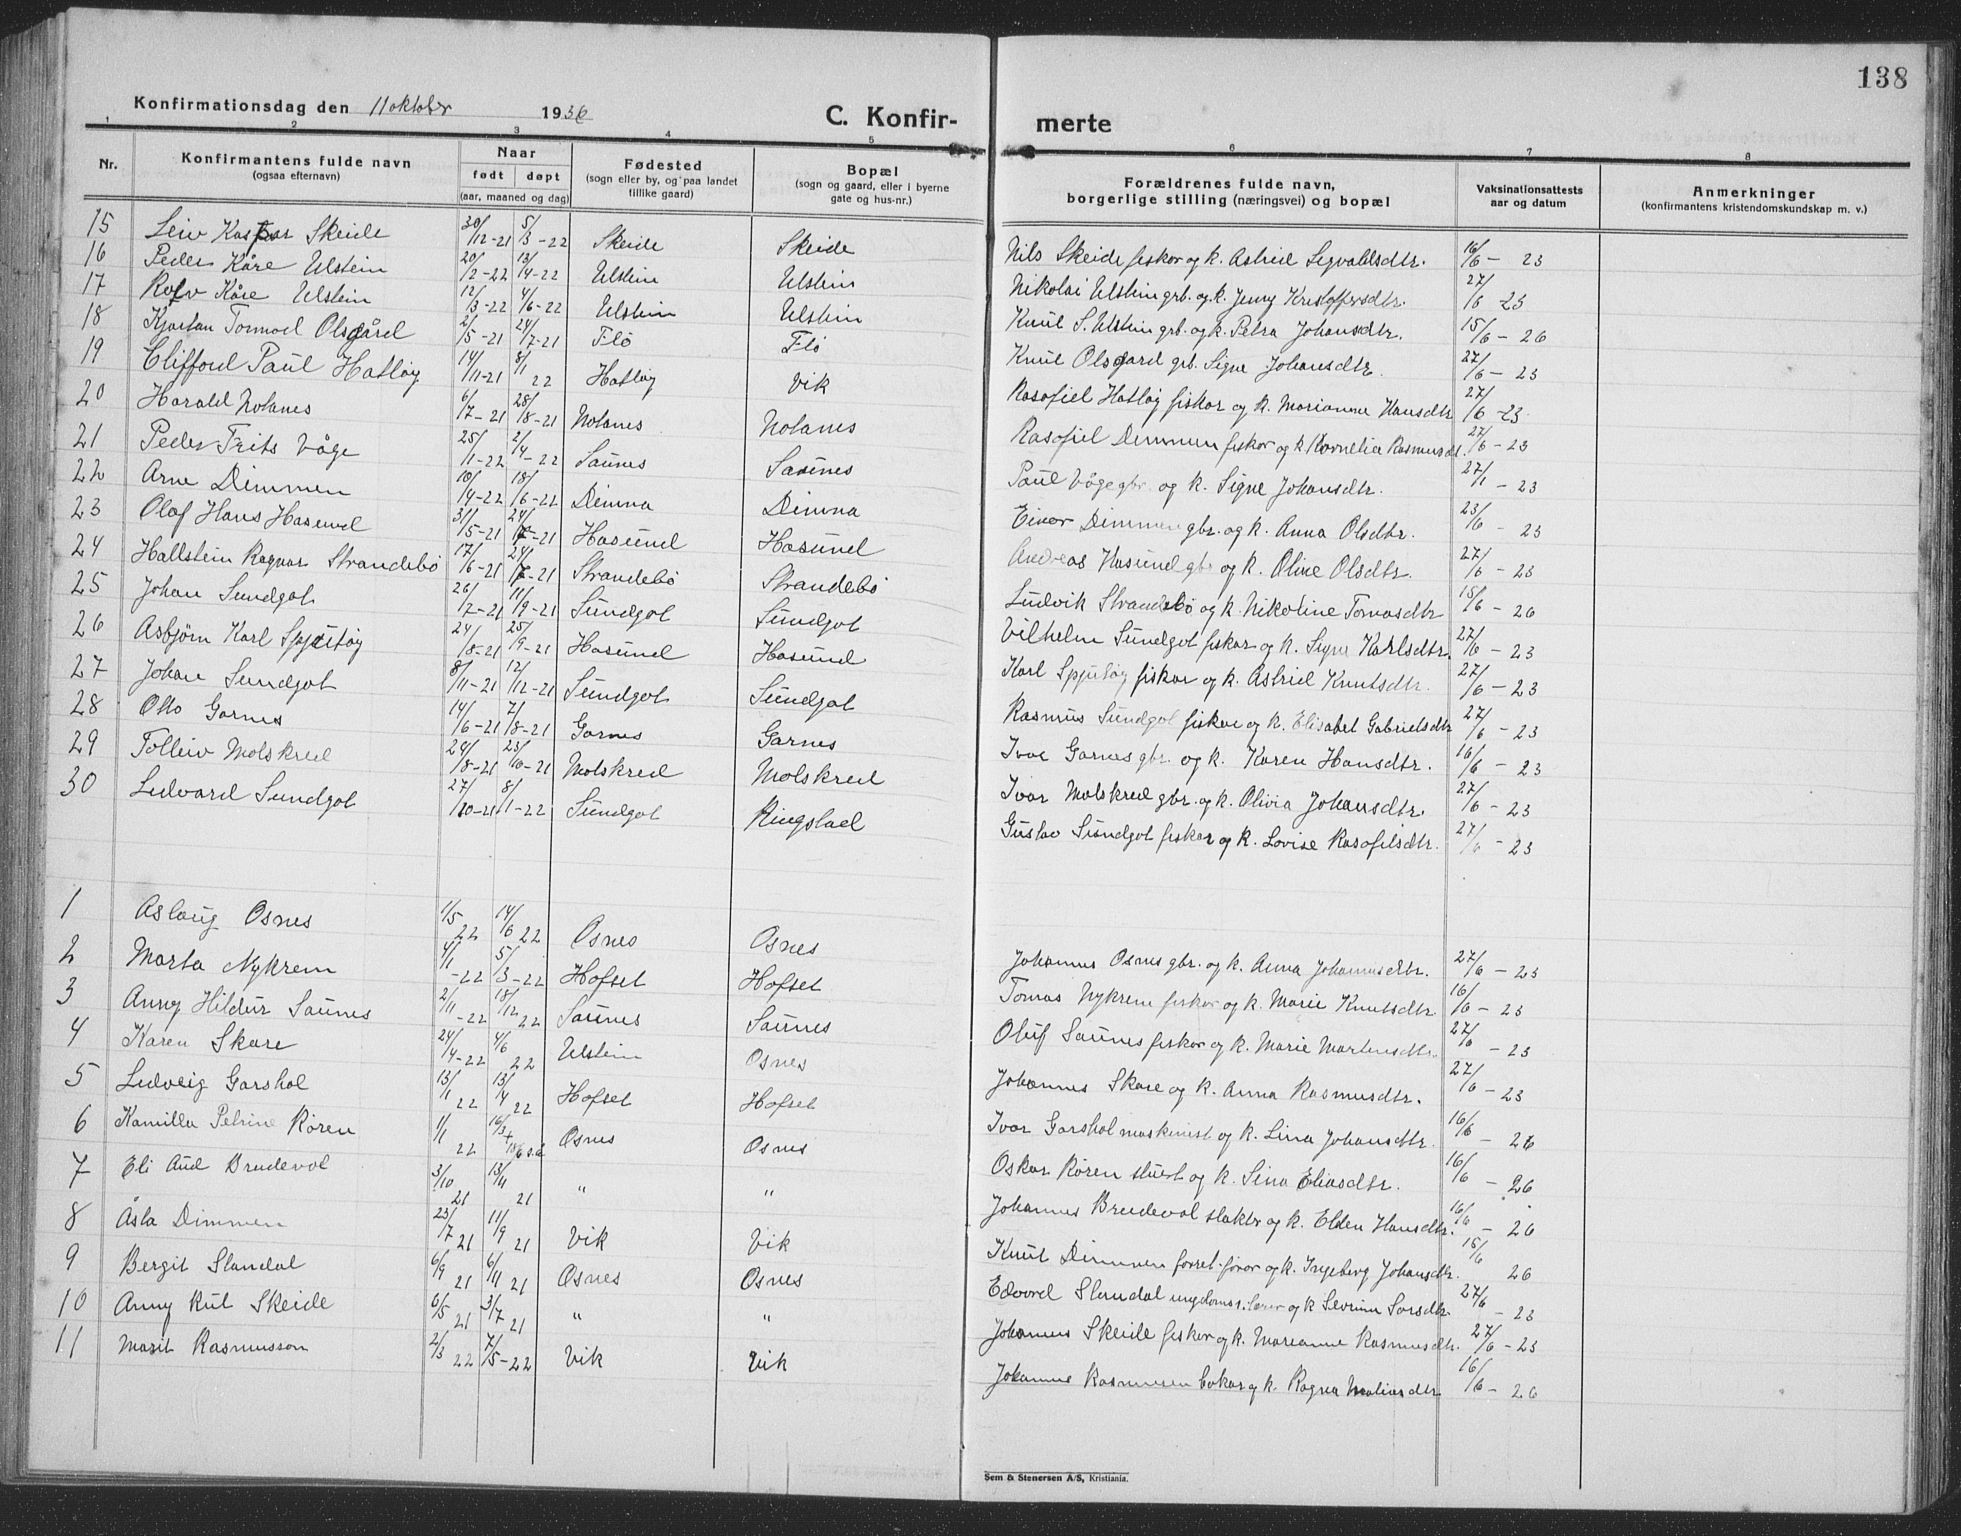 138
Konfirmationsdag den 11 oktober 1936
C. Konfir- merte
1 2 3 4 5 6 7 8
Nr. Konfirmantens fulde navn (ogsaa efternavn) Naar født døpt (aar, maaned og dag) Fødested (sogn eller by, og paa landet tillike gaard) Bopæl (sogn og gaard, eller i byerne gate og hus-nr.) Forældrenes fulde navn, borgerlige stilling (næringsvei) og bopæl Vaksinationsattests aar og datum Anmerkninger (konfirmantens kristendomskundskap m. v.)
15 Leiv Kaspar Skeide 30/12-21 5/3-22 Skeide Skeide Nils Skeide fiskar og k. Astrid Sigvaldsdtr. 16/6-23
16 Peder Kåre Ulstein 20/2-22 13/4-22 Ulstein Ulstein Nikolai Ulstein grb. og k. Jenny Kristoffersdtr. 27/6-23
17 Rolv Kåre Ulstein 12/3-22 4/6-22 Ulstein Ulstein Knut S. Ulstein grb. og k. Petra Johansdtr. 15/6-26
18 Kjartan Tormod Olsgård 2/5-21 24/7-21 Flö Flö Knut Olsgard grb. Signe Johansdtr. 27/6-23
19 Clifford Paul Hatløy 14/11-21 8/1 22 Hatløy Vik Rasofiel Hatløy fiskar og k. Marianne Hansdtr 27/6-23
20 Harald Nolanes 6/7-21 28/8-21 Nolanes Nolanes Rasofiel Dimmen fiskar og k. Kornelia Rasmusdt. 27/6-23
21 Peder Frits Våge 25/1-22 2/4-22 Saunes Saunes Paul Våge gbr. og k. Signe Johansdtr. 27/1-23
22 Arne Dimmen 10/4-22 18/6-22 Dimna Dimna Einar Dimmen gbr. og k. Anna Olsdtr. 23/6-23
23 Olaf Hans Hasund 31/5-21 24/7-21 Hasund Hasund Andreas Hasund gbr og k. Oline Olsdtr. 27/6-23
24 Hallstein Ragnar Strandebö 17/6-21 24/7-21 Strandebö Strandebö Ludvik Strandebö og k. Nikoline Tomasdtr 15/6-26
25 Johan Sundgot 26/7-21 11/9-21 Sundgot Sundgot Vilhelm Sundgot fiskar og k. Signe Karlsdtr. 27/6-23
26 Asbjörn Karl Spjutøy 24/8-21 25/9-21 Hasund Hasund Karl Spjutøy fiskar og k. Astrid Knutsdtr. 27/6-23
27 Johan Sundgot 8/11-21 12/12-21 Sundgot Sundgot Rasmus Sundgot fiskar og k. Elisabet Gabrielsdtr 27/6-23
28 Otto Garnes 14/6-21 7/8-21 Garnes Garnes Ivar Garnes gbr. og k. Karen Hansdtr. 16/6-23
29 Tolleiv Molskred 24/8-21 23/10-21 Molskred Molskred Ivar Molskred gbr. og k. Olivia Johansdtr. 27/6-23
30 Ludvard Sundgot 27/10-21 8/1-22 Sundgot Ringstad Gustav Sundgot fiskar og k. Lovise Rasofilsdtr. 27/6-23
1 Aslaug Osnes 1/5 22 14/6 22 Osnes Osnes Johannes Osnes gbr. og k. Anna Johannesdtr. 27/6-23
2 Marta Nykrem 4/1-22 5/3-22 Hofset Hofset Tomas Nykrem fiskar og k. Marie Knutsdtr 16/6-23
3 Anny Hildur Saunes 2/11-22 18/12 22 Saunes Saunes Oluf Saunes fiskar og k. Marie Martensdtr. 27/6-23
4 Karen Skare 24/4-22 4/6 22 Ulstein Osnes Johannes Skare og k. Anna Rasmusdtr. 27/6-23
5 Ludveig Garshol 13/1 22 13/4 22 Hofset Hofset Ivar Garshol maskinist og k. Lina Johansdtr. 16/6-26
6 Kamilla Petrine Rören 1/1 22 Osnes Osnes Oskar Rören stuert og k. Sina Eliasdtr. 16/6-26
7 Eli Aud Brudevol 3/10 21 13/11 21 " " Johannes Brudevol slaktar og k. Elden Hansdtr. 16/6-26
8 Åsta Dimmen 23/7 21 11/9 21 Vik Vik Knut Dimmen forret.förar og k. Ingeborg Johansdtr. 15/6 26
9 Bergit Slandal 6/9 21 6/11 21 Osnes Osnes Edvard Slandal ungdoms og k Severine Larsdtr. 27/6-23
10 Anny Rut Skeide 6/5 21 3/7 21 " " Johannes Skeide fiskar og k. Marianne Rasmusdtr. 27/6-23
11 Marit Rasmusson 2/3 22 7/5-22 Vik Vik Johannes Rasmussen bakar og k. Ragna Matiasdtr 16/6-26
Sem & Stenersen A/S, Kristiania.